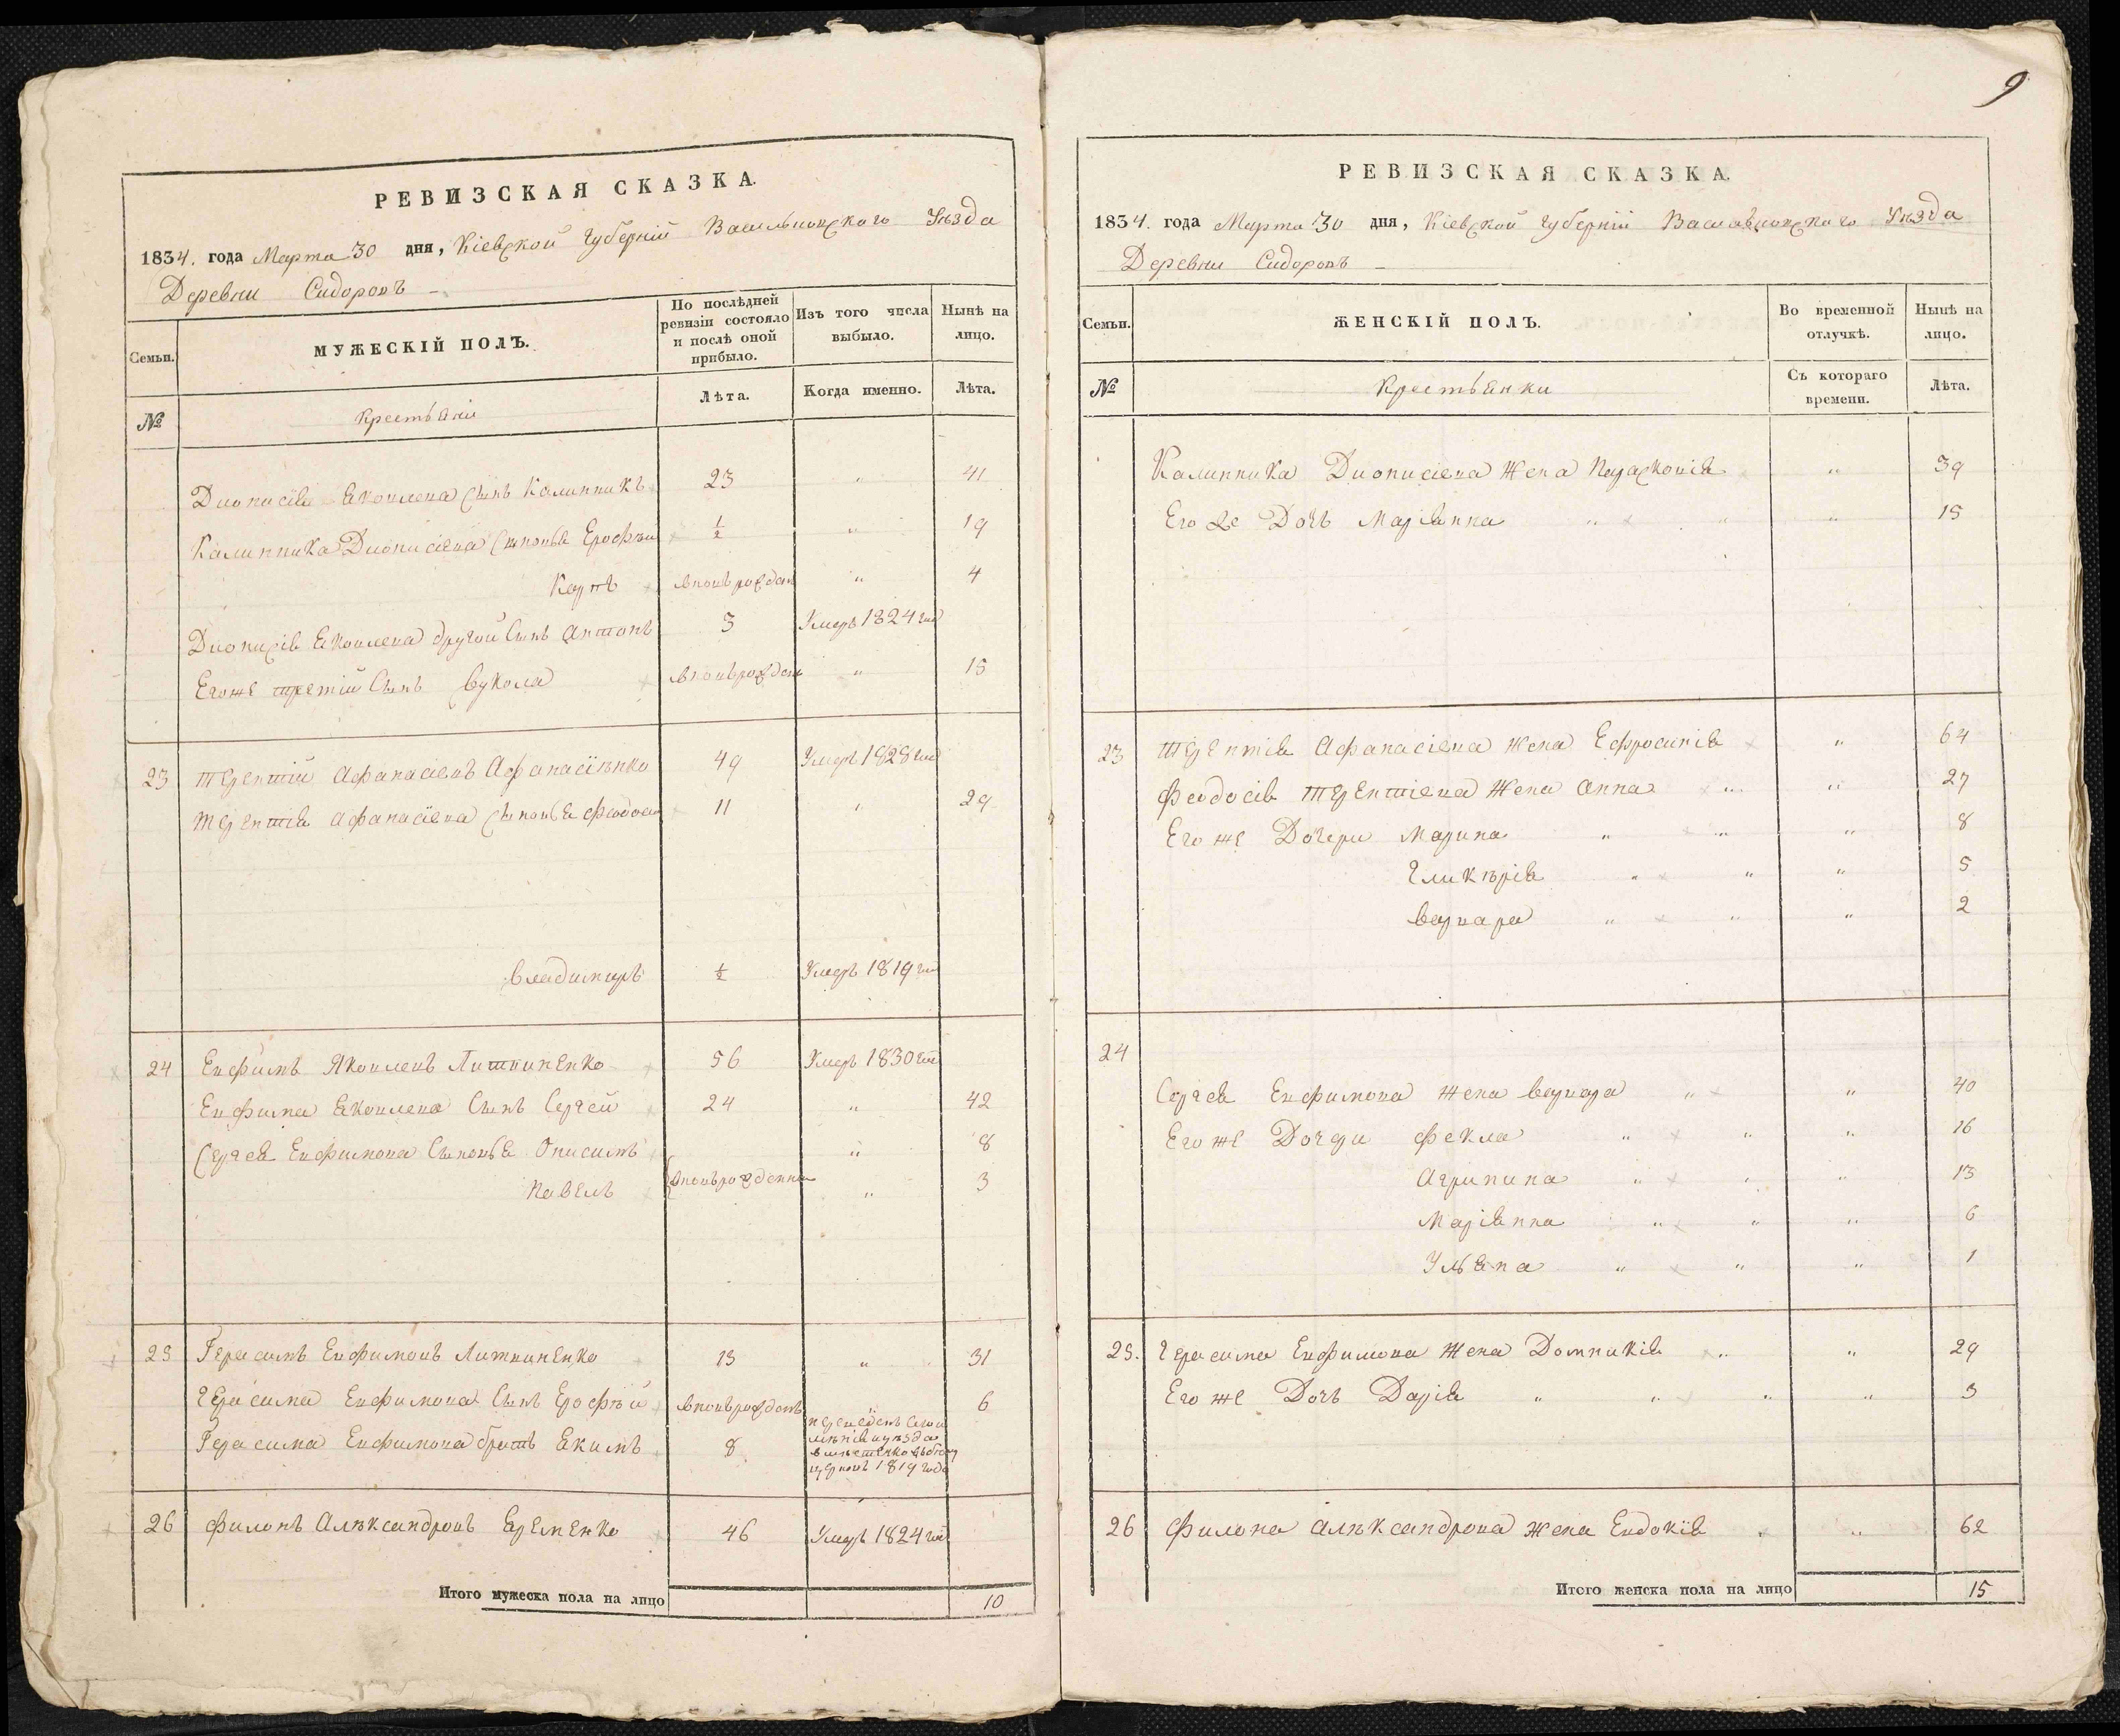 9
РЕВИЗСКАЯ СКАЗКА.
1834. года Марта 30 дня, Кіевской Губерніи Васильковского Уѣзда
Деревни Сидоровъ
Семьи.
МУЖЕСКІЙ ПОЛЪ.
По послѣдней ревизіи состояло и послѣ оной прибыло.
Изъ того числа выбыло.
Нынѣ на лицо.
№
Крестьяни
Лѣта.
Когда именно.
Лѣта.
Дионисія Яковлева сынъ Калинникъ 23 " 41
Калинника Дионисіева сыновья Ерофѣй ½ " 19
Карпъ вновьрожден " 4
Дионисія Яковлева другой Сынъ Антонъ 3 Умеръ 1824 год
Егоже третій Сынъ Вукола вновьрожден " 15
23 Терентій Афанасіевъ Афанасіѣнко 49 Умеръ 1828 год
Терентія Афанасіева сыновья Феодосій 11 " 29
Владимиръ ½ Умеръ 1819 год
24 Евфимъ Яковлевъ Литвиненко 56 Умеръ 1830 год
Евфима Яковлева Сынъ Сергей 24 " 42
Сергея Евфимова Сыновья Онисимъ " 8
Павелъ вновьрожденни " 3
25 Герасимъ Евфимовъ Литвиненко 13 " 31
Герасима Евфимова Сынъ Ерофѣй вновьрожденъ 6
Герасима Евфимова братъ Якимъ 8 переведенъ
уѣзда
1819 года
26 Филонъ Алѣксандровъ Яременко 46 Умеръ 1824 год
Итого мужеска пола на лицо 10
РЕВИЗСКАЯ СКАЗКА.
1834. года Марта 30 дня, Кіевской Губерніи Васильковского Уѣзда
Деревни Сидоровъ
Семьи.
ЖЕНСКІЙ ПОЛЪ.
Во временной отлучкѣ.
Нынѣ на лицо.
№
Крестьянки
Съ котораго времени.
Лѣта.
Калинника Дионисіева Жена Парасковія " 39
Его же Дочь Маріянна " " " 15
23 Терентія Афанасіева жена Ефросинія " 64
Феодосія Терентіева Жена Анна " " 27
Его же Дочери Марина " " " 8
Гликѣрія " " " 5
Варвара " " " 2
24
Сергея Евфимова жена Варвара " " 40
Его же Дочери Фекла " " " 16
Агрипина " " " 13
Маріянна " " " 6
Ульяна " " " 1
25. Герасима Евфимова Жена Домникія " " 29
Его же Дочь Дарія " " " " 3
26 Филона Алѣксандрова жена Евдокія " " 62
Итого женска пола на лицо 15